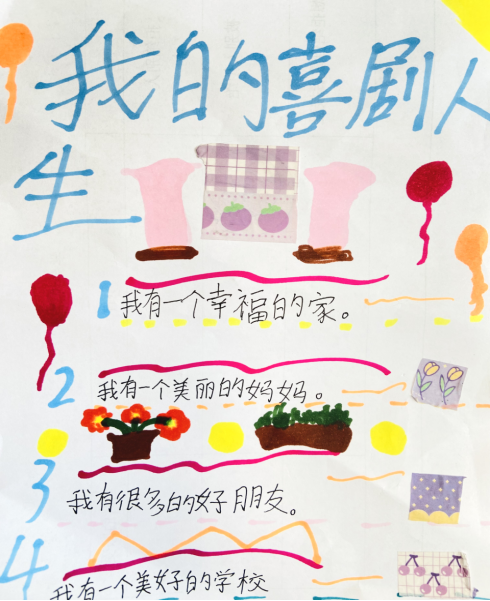 我的喜剧人
生
1 我有一个幸福的家。
2 我有一个美丽的妈妈。
3 我有很多的好朋友。
4 我有一个美好的学校